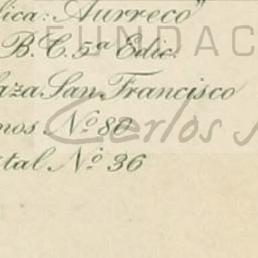 lica: "Aurreco"
B. C. 5ª Edic.
aza San Francisco
nos Nº 80
tal Nº 36
FUNDAC
Carlos